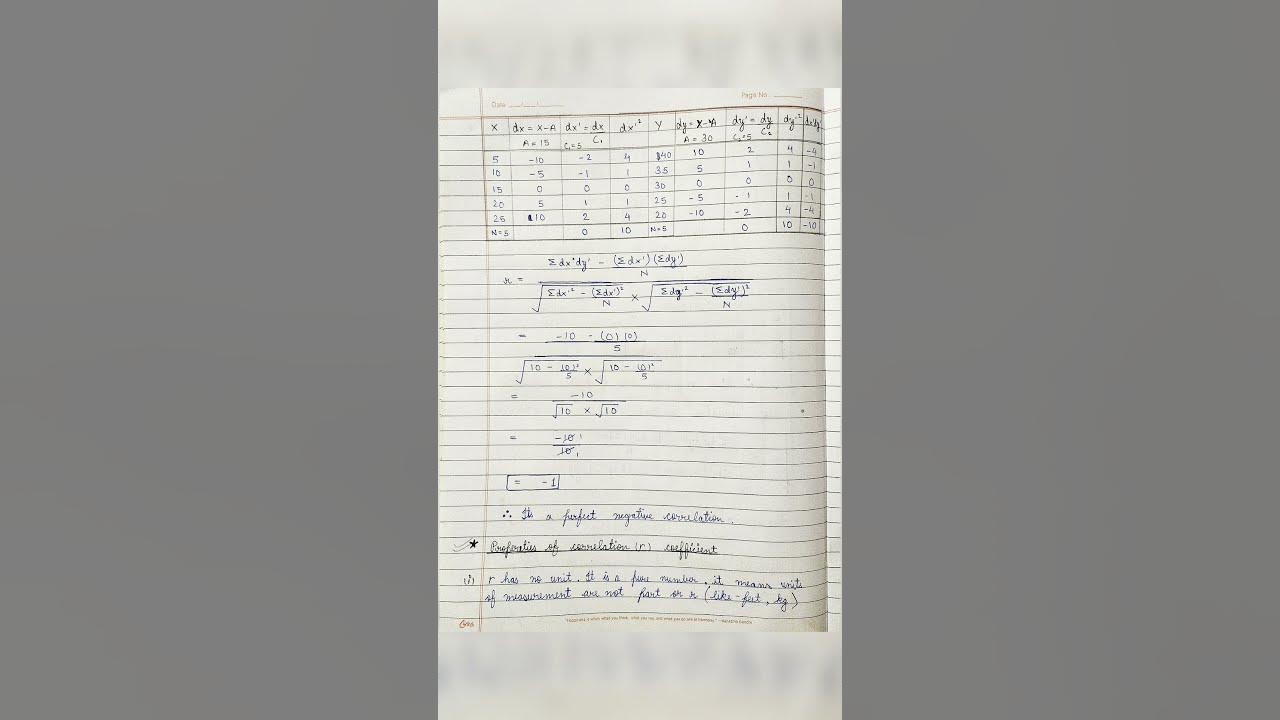 Date ___/___/___
Page No. ___
X dx = X-A dx' = dx/C₁ dx'² Y dy = Y-A dy' = dy/C₂ dy'² dx'dy'
A = 15 C₁=5 A = 30 C₂=5
5 -10 -2 4 40 10 2 4 -4
10 -5 -1 1 35 5 1 1 -1
15 0 0 0 30 0 0 0 0
20 5 1 1 25 -5 -1 1 -1
25 10 2 4 20 -10 -2 4 -4
N=5 0 10 N=5 0 10 -10
Σdx'dy' - (Σdx')(Σdy')/N
r =
√(Σdx'² - (Σdx')²/N) × √(Σdy'² - (Σdy')²/N)
= -10 - (0)(0)/5
√(10 - (0)²/5) × √(10 - (0)²/5)
= -10
√10 × √10
= -10 1
10 1
= -1
∴ Its a perfect negative correlation.
★ Properaties of correlation (r) coefficient
(i) r has no unit. It is a pure number, it means units
of measurement are not part or r (like - feet, kg)
"Happiness is when what you think, what you say, and what you do are in harmony." - Mahatma Gandhi